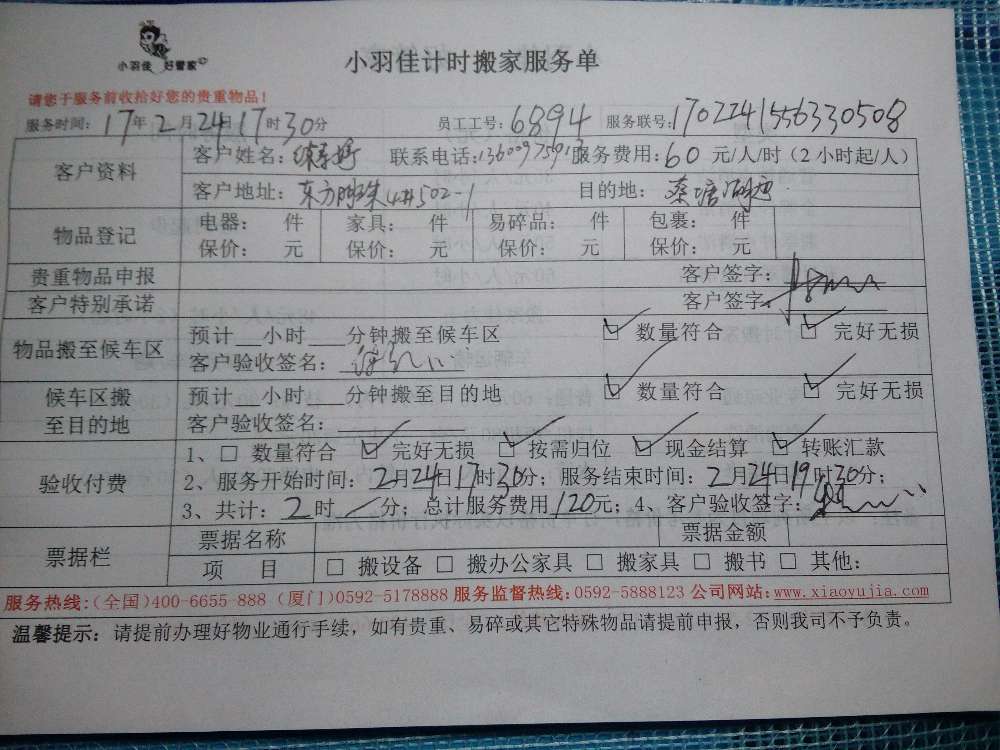 小羽佳 好管家
小羽佳计时搬家服务单
请您于服务前收拾好您的贵重物品！
服务时间：17年2月24日17时30分 员工工号：6894 服务联号：1702241556330508
客户资料 客户姓名： 联系电话：13600975913 服务费用：60元/人/时（2小时起/人）
客户地址：东方明珠4#502-1 目的地：蔡塘
物品登记 电器： 件 家具： 件 易碎品： 件 包裹： 件
保价： 元 保价： 元 保价： 元 保价： 元
贵重物品申报 客户签字：
客户特别承诺 客户签字：
物品搬至候车区 预计__小时___分钟搬至候车区 ☑ 数量符合 ☑ 完好无损
客户验收签名：
候车区搬至目的地 预计__小时___分钟搬至目的地 ☑ 数量符合 ☑ 完好无损
客户验收签名：
验收付费 1、□ 数量符合 ☑ 完好无损 ☑ 按需归位 ☑ 现金结算 ☑ 转账汇款
2、服务开始时间：2月24日17时30分；服务结束时间：2月24日19时30分；
3、共计：2时/分；总计服务费用120元；4、客户验收签字：
票据栏 票据名称 票据金额
项 目 □ 搬设备 □ 搬办公家具 □ 搬家具 □ 搬书 □ 其他：
服务热线：(全国)400-6655-888 (厦门)0592-5178888 服务监督热线：0592-5888123 公司网站：www.xiaoyujia.com
温馨提示：请提前办理好物业通行手续，如有贵重、易碎或其它特殊物品请提前申报，否则我司不予负责。